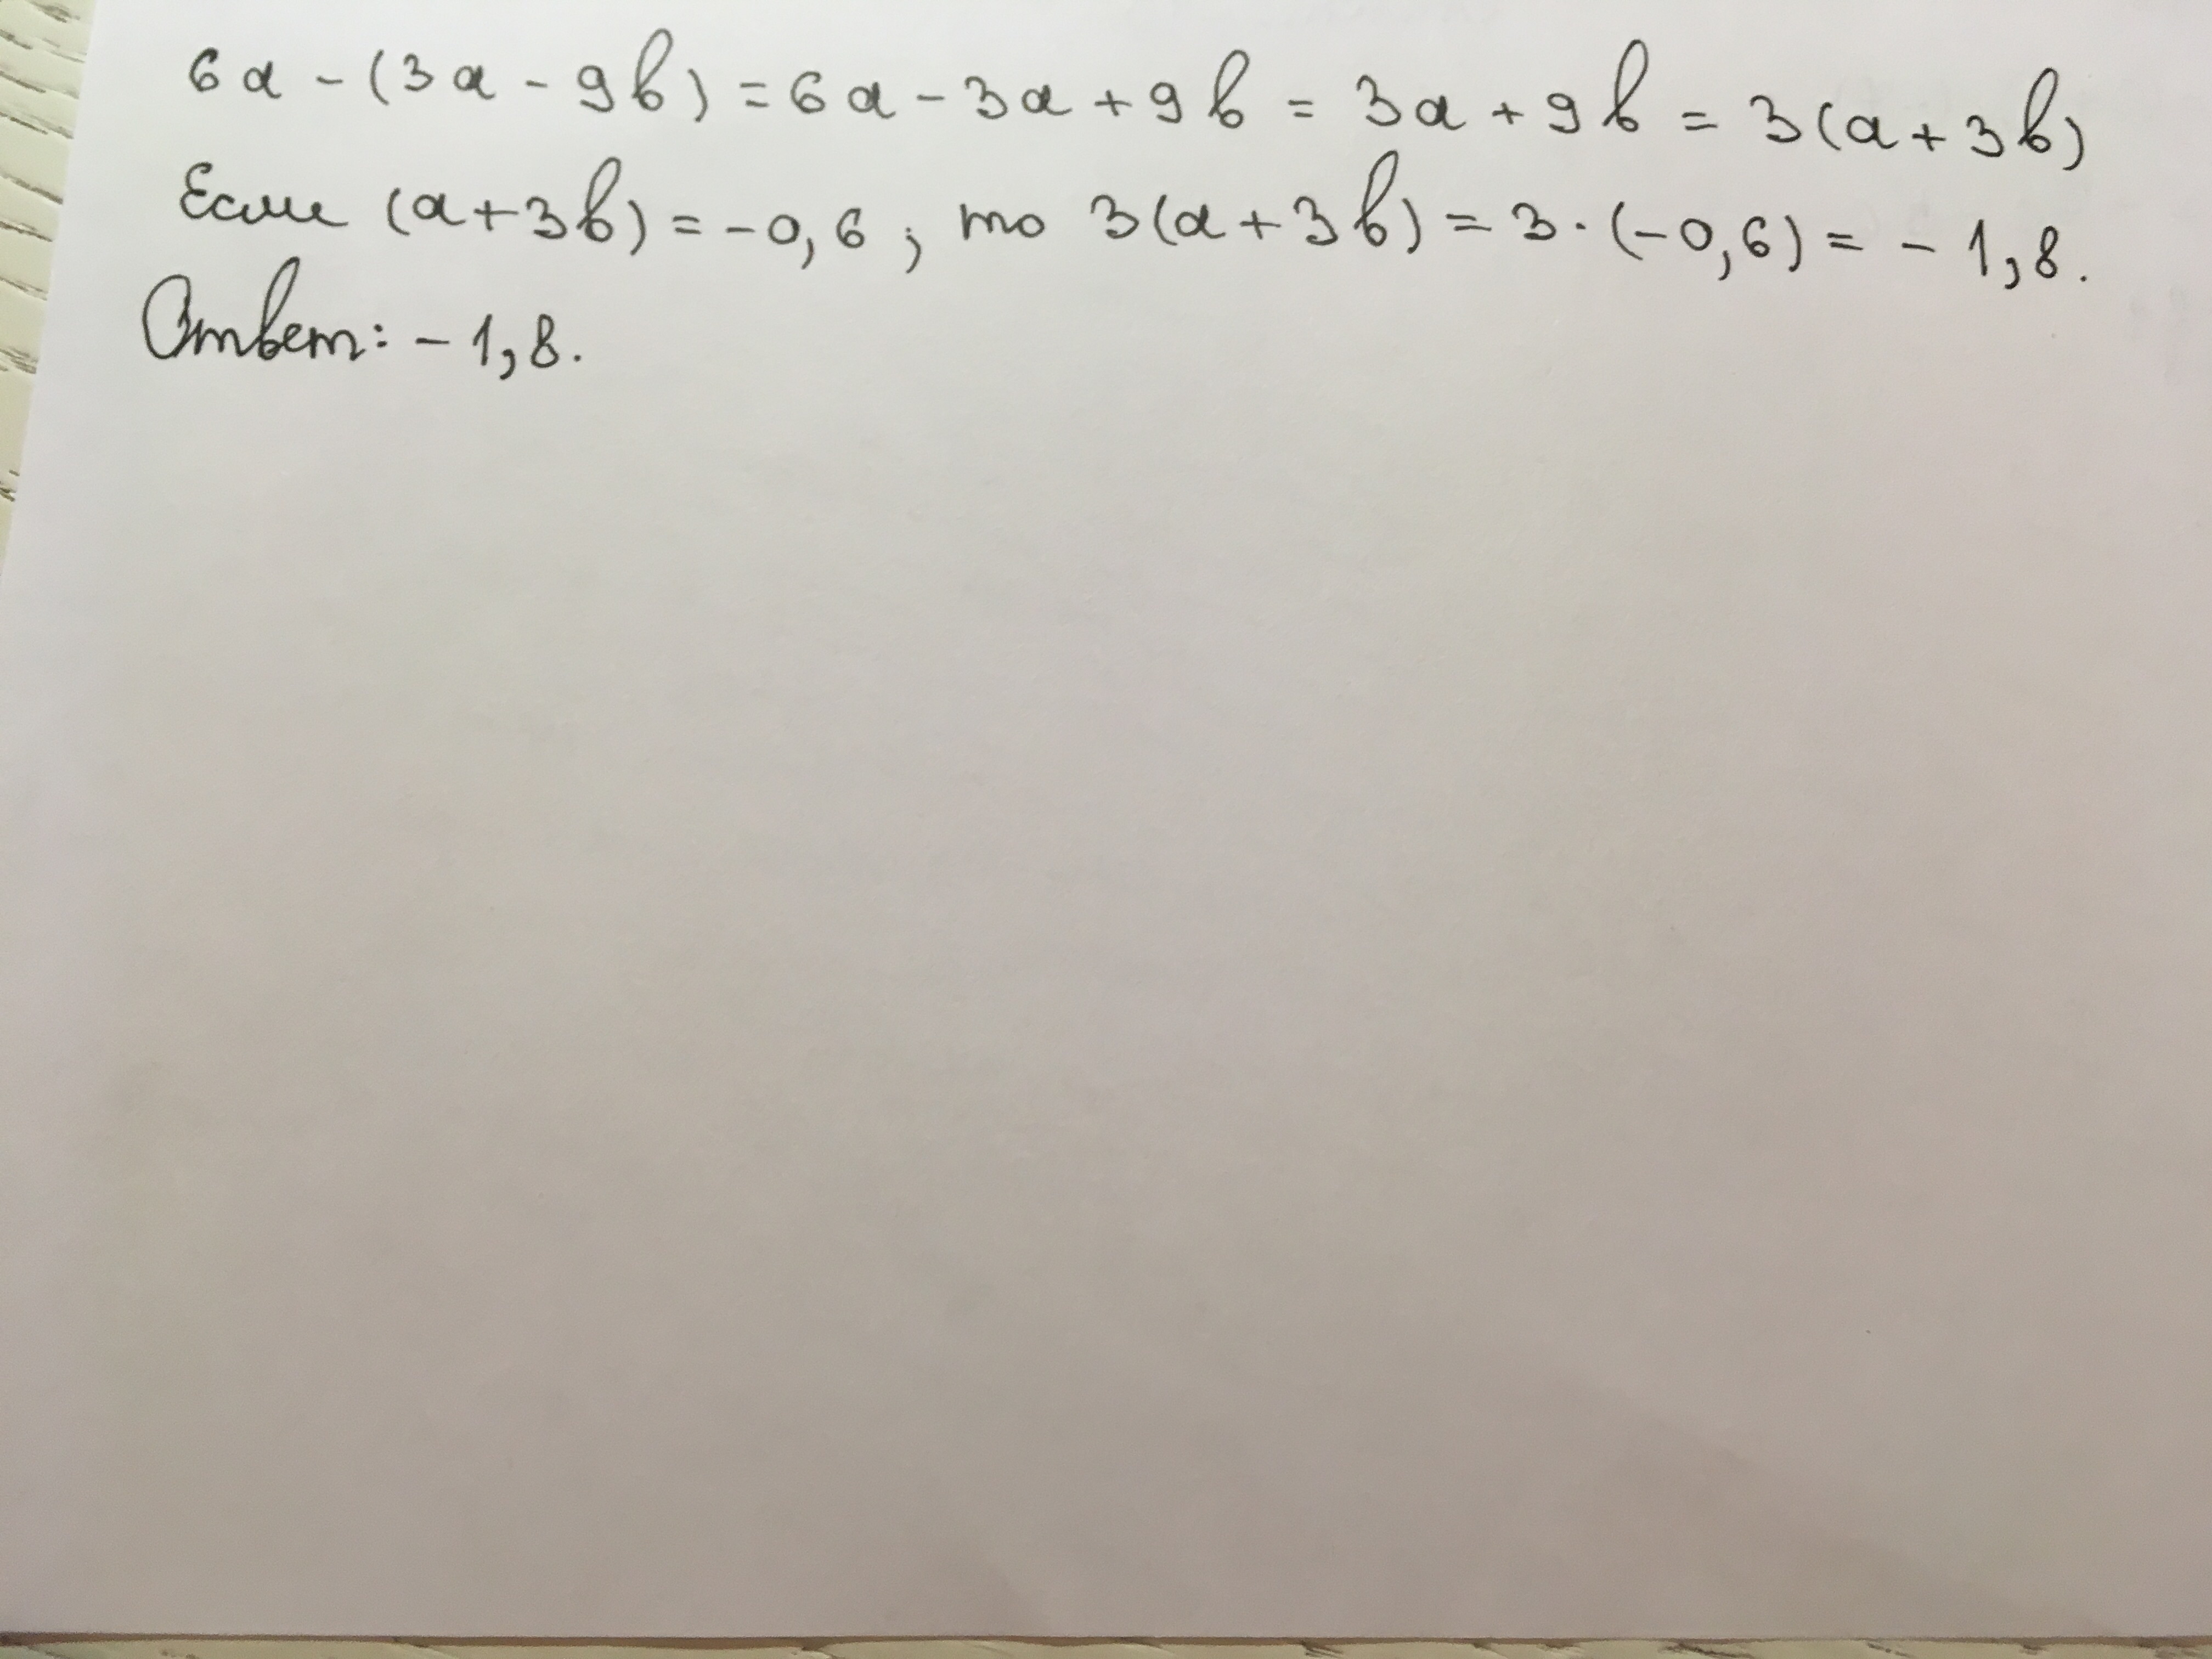 6a - (3a - 9b) = 6a - 3a + 9b = 3a + 9b = 3(a + 3b)
Если (a + 3b) = -0,6 ; то 3(a + 3b) = 3 · (-0,6) = - 1,8.
Ответ: - 1,8.